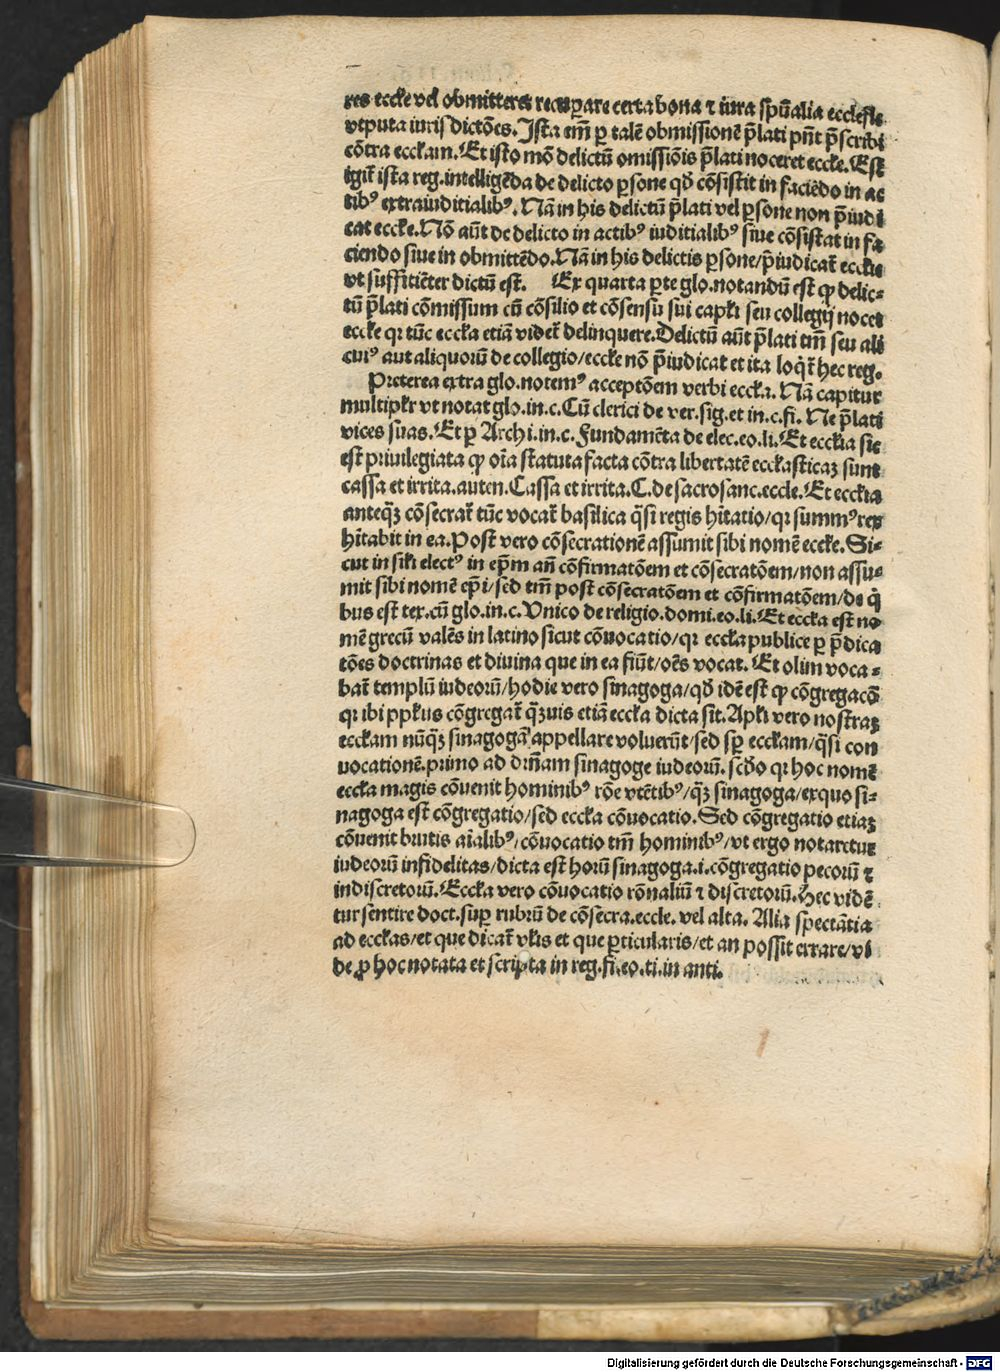 res eccƚe vel obmitteret recuꝑare certa bona ⁊ iura spūalia ecclesie
vtputa iurisdictões. Ista em̄ ꝑ talē obmissionē p̄lati pn̄t p̄scribi
cōtra eccƚam. Et isto mō delictū omissiōis p̄lati noceret eccƚe. Est
igit̄ ista reg. intelligēda de delicto ꝑsone qđ cōsistit in faciēdo in ac
tibꝰ extraiuditialibꝰ. Nā in his delictū p̄lati vel ꝑsone non p̄iudi
cat eccƚe. Nō aūt de delicto in actibꝰ iuditialibꝰ siue cōsistat in fa
ciendo siue in obmittēdo. Nā in his delictis ꝑsone/p̄iudicat̄ eccƚie
vt suffitiēter dictū est. Ex quarta ꝑte glo. notandū est ꝙ delic-
tū p̄lati cōmissum cū cōsilio et cōsensu sui capƚi seu collegij nocet
eccƚe qꝛ tūc eccƚa etiā videt̄ delinquere. Delictū aūt p̄lati tm̄ seu ali
cuiꝰ aut aliquorū de collegio/eccƚe nō p̄iudicat et ita loq̄t̄ hec reg.
Preterea extra glo. notemꝰ acceptōem verbi eccƚa. Nā capitur
multipƚr vt notat glo. in. c. Cū clerici de ver. sig. et in. c. fi. Ne p̄lati
vices suas. Et ꝑ Archi. in. c. Fundamēta de elec. eo. li. Et eccƚia sic
est priuilegiata ꝙ oīa statuta facta cōtra libertatē eccƚasticaꝫ sunt
cassa et irrita. auten. Cassa et irrita. C. de sacrosanc. eccle. Et eccƚia
anteqꝫ cōsecrat̄ tūc vocat̄ basilica q̄si regis hītatio/qꝛ summꝰ rex
hītabit in ea. Post vero cōsecrationē assumit sibi nomē eccƚe. Si-
cut in siƚi electꝰ in ep̄m an̄ cōfirmatōem et cōsecratōem/non assu-
mit sibi nomē ep̄i/sed tm̄ post cōsecratōem et cōfirmatōem/de q̄
bus est tex. cū glo. in. c. Vnico de religio. domi. eo. li. Et eccƚa est no
mē grecū valēs in latino sicut cōuocatio/qꝛ eccƚa publice ꝑ p̄dica
tōes doctrinas et diuina que in ea fiūt/oēs vocat. Et olim voca-
bat̄ templū iudeorū/hodie vero sinagoga/qđ idē est ꝙ cōgregacō
qꝛ ibi ppƚus cōgregat̄ qꝫuis etiā eccƚa dicta sit. Apƚi vero nostraꝫ
eccƚam nūqꝫ sinagogā appellare voluerūt/sed sꝑ eccƚam/q̄si con
uocationē. primo ad dr̄nam sinagoge iudeorū. scđo qꝛ hoc nomē
eccƚa magis cōuenit hominibꝰ rōe vtētibꝰ/qꝫ sinagoga/exquo si-
nagoga est cōgregatio/sed eccƚa cōuocatio. Sed cōgregatio etiaꝫ
cōuenit brutis aīalibꝰ/cōuocatio tm̄ hominibꝰ/vt ergo notaretur
iudeorū infidelitas/dicta est horū sinagoga. i. cōgregatio pecorū ⁊
indiscretorū. Eccƚa vero cōuocatio rōnaliū ⁊ discretorū. Hec vidē-
tur sentire doct. suꝑ rubrū de cōsecra. eccle. vel alta. Alia spectātia
ad eccƚas/et que dicat̄ vƚis et que ꝑticularis/et an possit errare/vi
de ꝓ hoc notata et scripta in reg. fi. eo. ti. in anti.
Digitalisierung gefördert durch die Deutsche Forschungsgemeinschaft - DFG